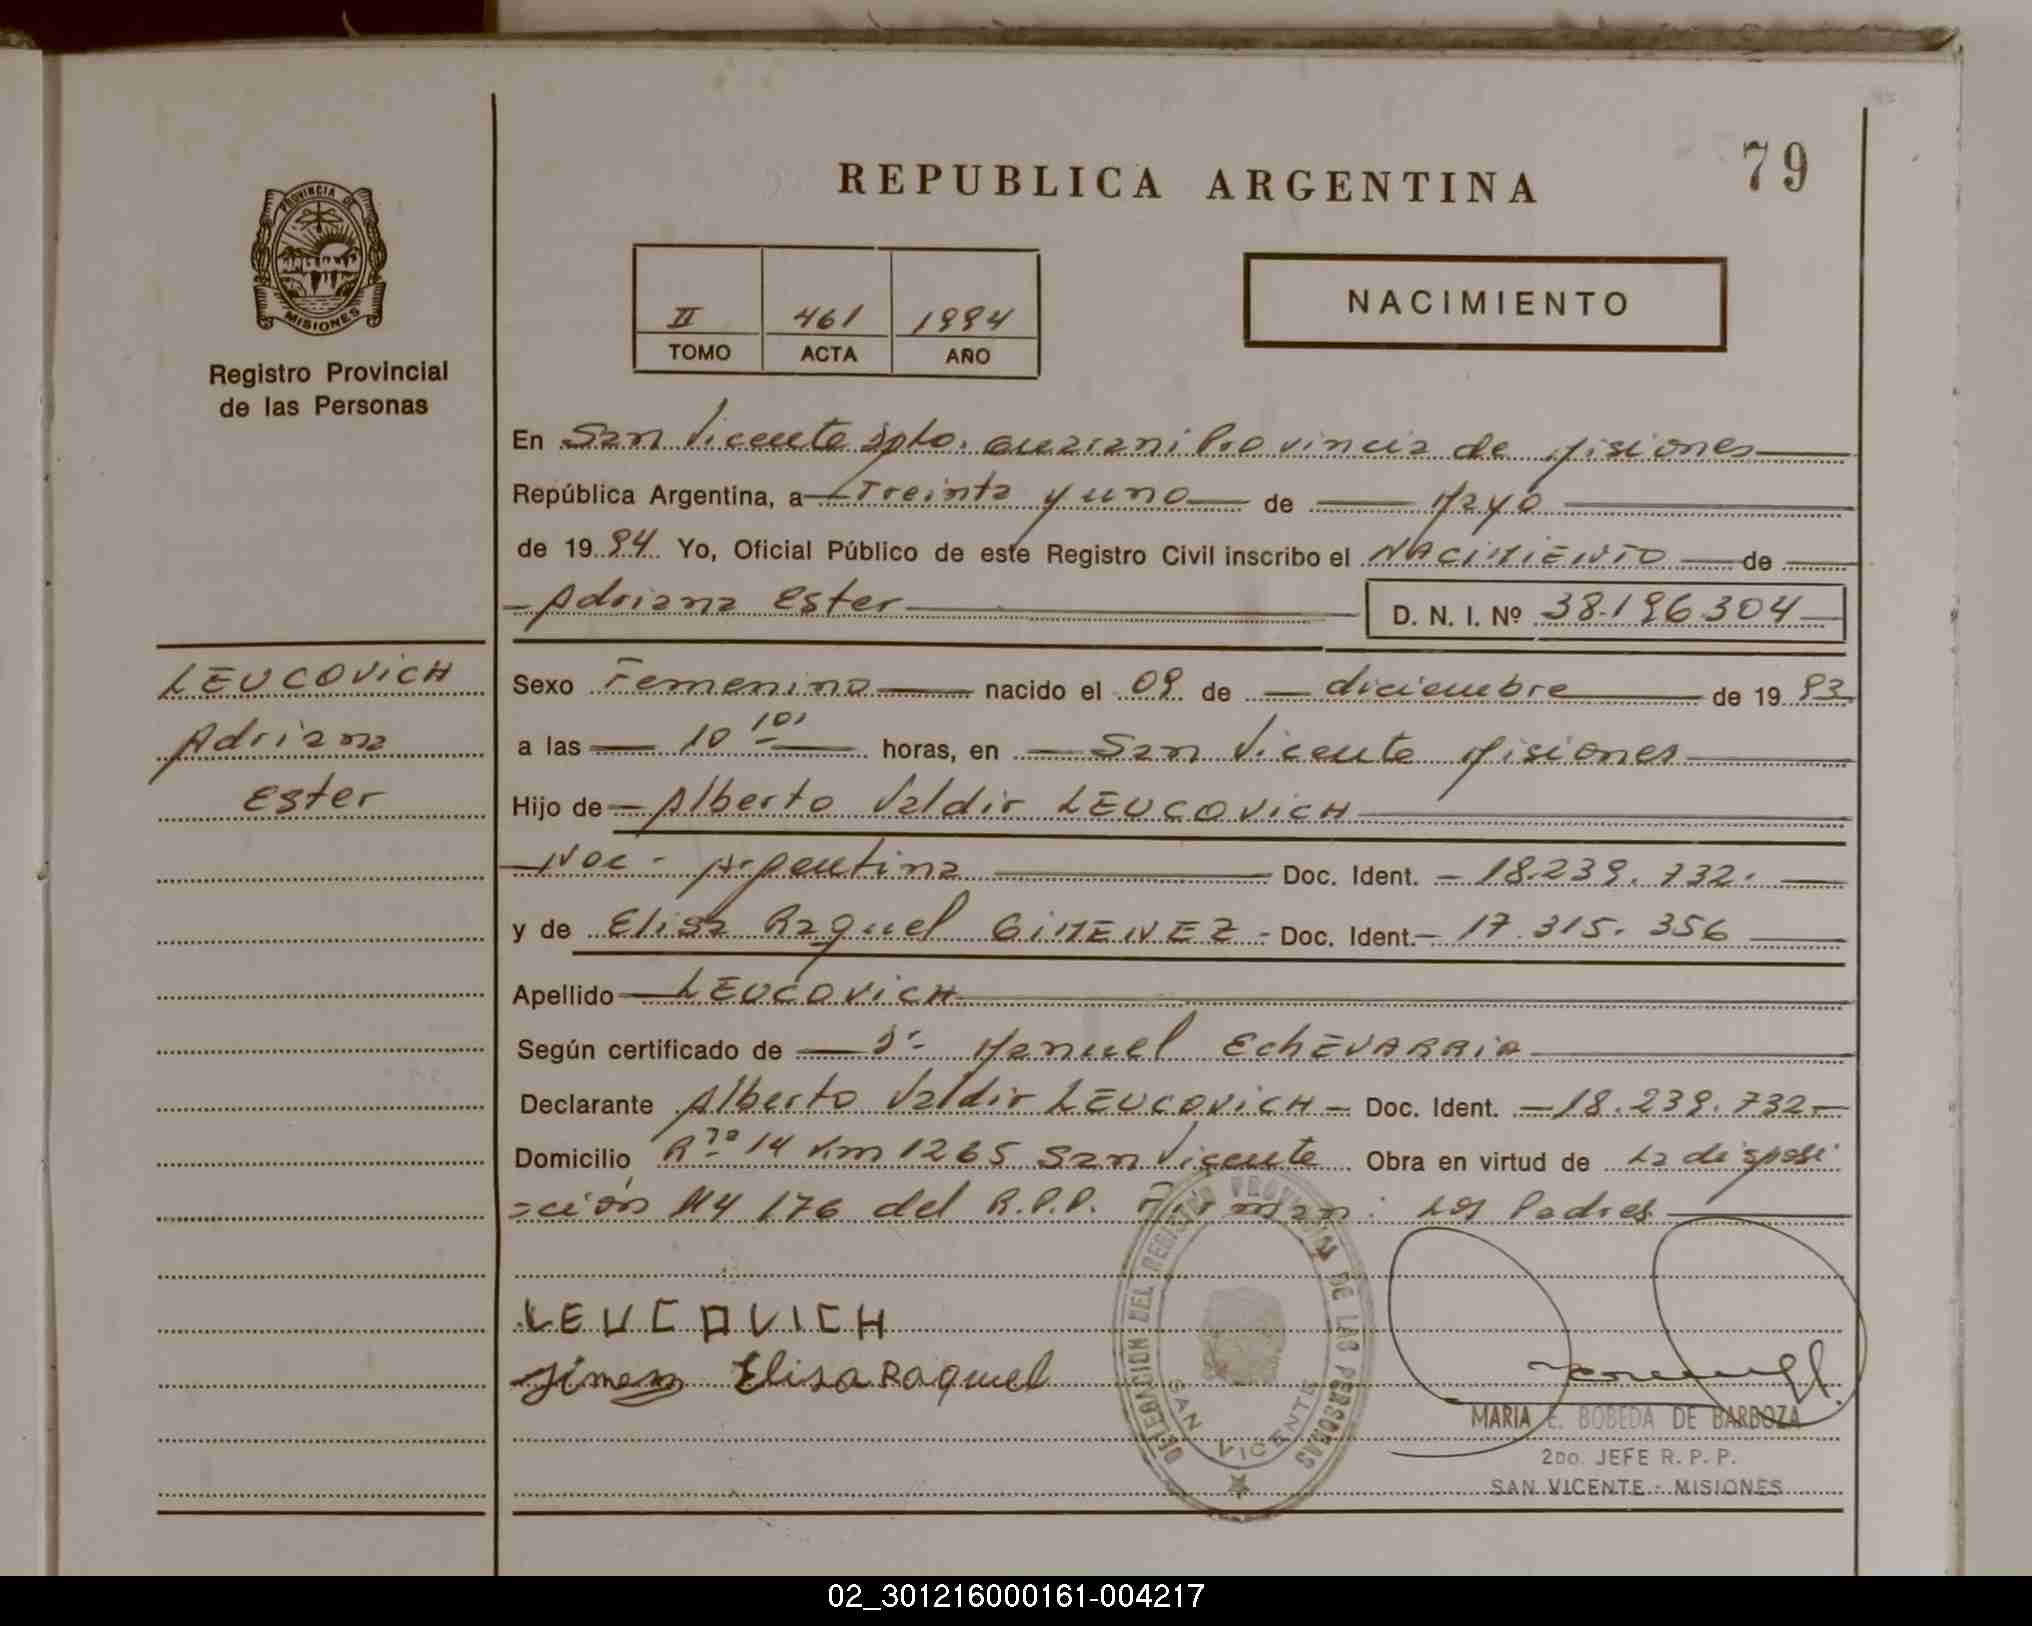 79
REPUBLICA ARGENTINA
PROVINCIA DE
MISIONES
Registro Provincial
de las Personas
II 461 1994
TOMO ACTA AÑO
NACIMIENTO
En San Vicente Dpto. Guarani Provincia de Misiones
República Argentina, a Treinta y uno de Mayo
de 1994 Yo, Oficial Público de este Registro Civil inscribo el NACIMIENTO de
Adriana Ester D. N. I. Nº 38.196.304
LEUCOVICH
Adriana
Ester
Sexo Femenino nacido el 09 de diciembre de 1993
a las 10 10' horas, en San Vicente Misiones
Hijo de Alberto Valdir LEUCOVICH
Nac - Argentina Doc. Ident. 18.239.732.
y de Elisa Raquel GIMENEZ - Doc. Ident. 17.315.356
Apellido LEUCOVICH
Según certificado de Dr Manuel EchEVARRIA
Declarante Alberto Valdir LEUCOVICH Doc. Ident. 18.239.732
Domicilio Rta 14 Km 1265 San Vicente Obra en virtud de La disposi
ción 114/176 del R.P.P. Firman: Los Padres
LEUCOVICH
Elisa Raquel
DELEGACION DEL REGISTRO PROVINCIAL DE LAS PERSONAS
SAN VICENTE
MARIA E. BOBEDA DE BARBOZA
2DO. JEFE R. P. P.
SAN VICENTE - MISIONES
02_301216000161-004217